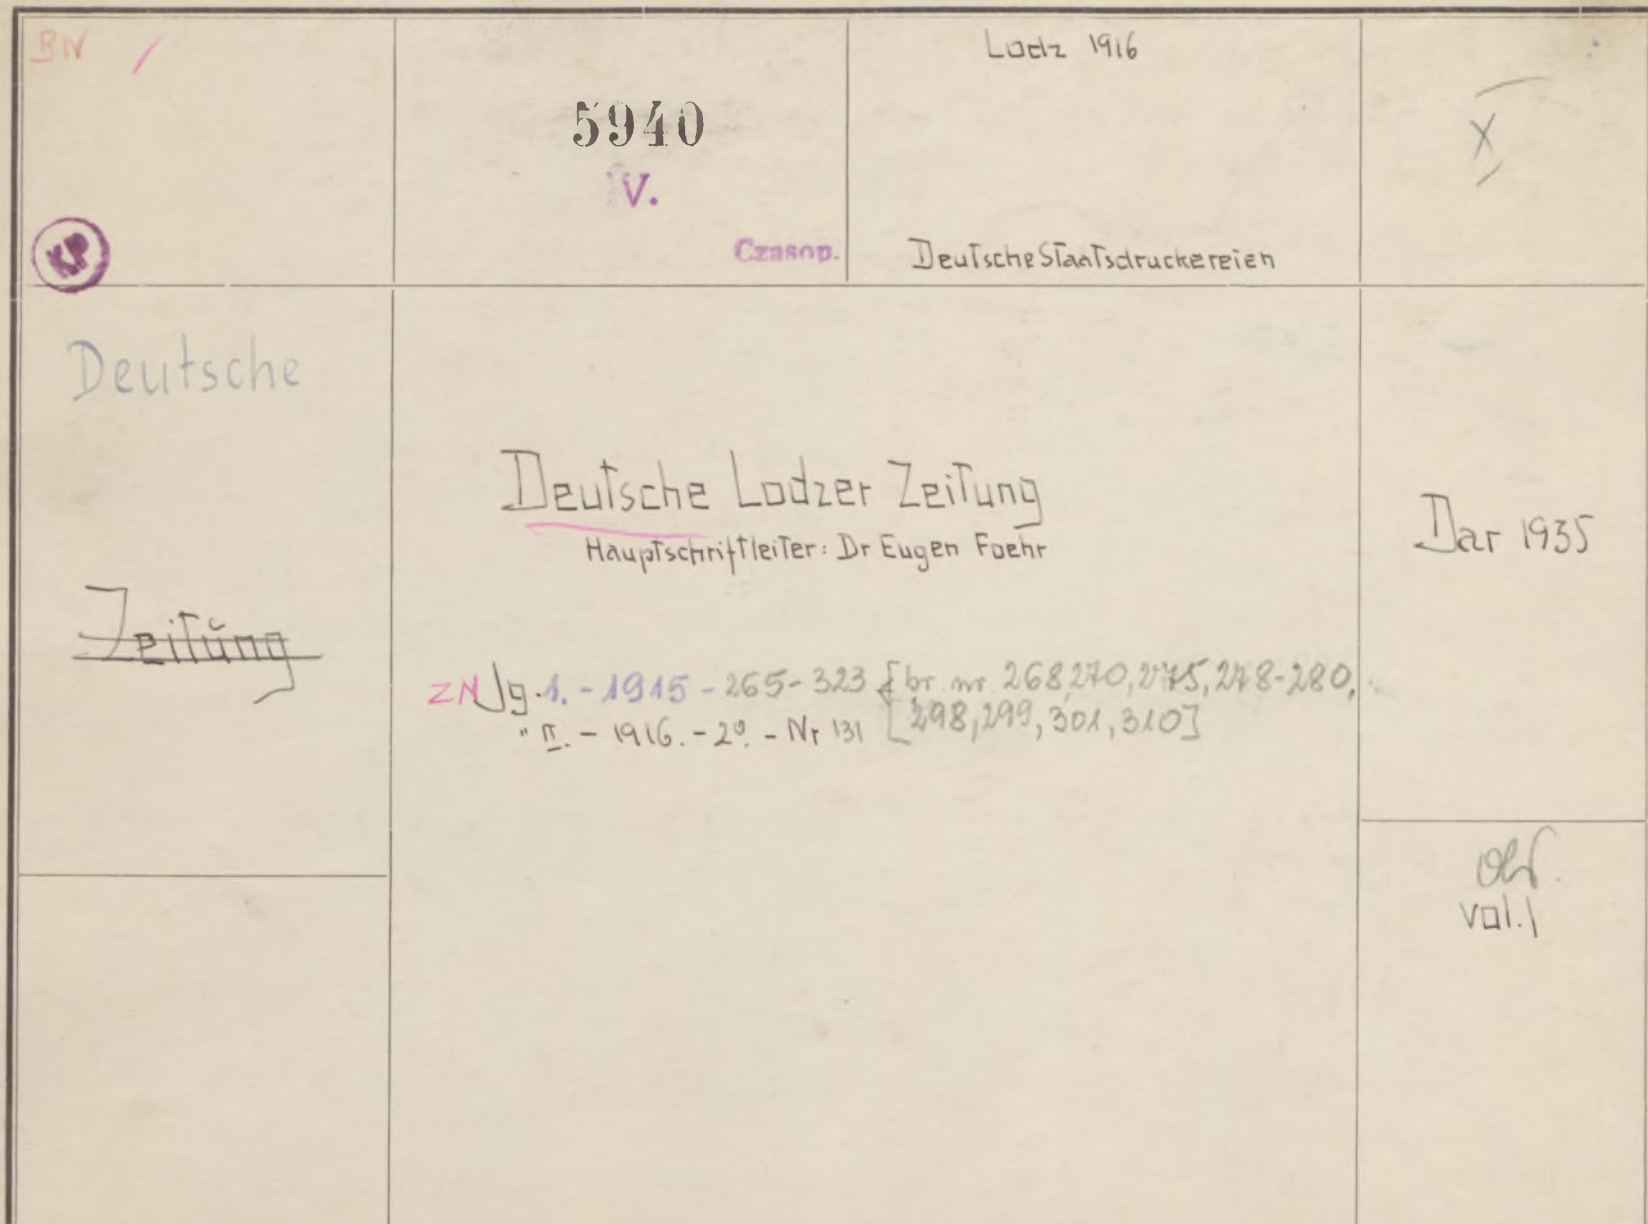 BN /
5940
V.
Czasop.
Lodz 1916
Deutsche Staatsdruckereien
X
KP
Deutsche
Zeitŭng
Deutsche Lodzer Zeitung
Hauptschriftleiter: Dr Eugen Foehr
ZN Jg. 1. - 1915 - 265 - 323 [br. nr 268, 270, 275, 278-280,
" II. - 1916. - 2º. - Nr 131 298, 299, 301, 310]
Dar 1935
vol. 1